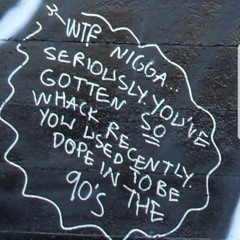 WTF NIGGA..
SERIOUSLY. YOU'VE
GOTTEN SO
WHACK RECENTLY.
YOU USED TO BE
DOPE IN THE
90'S